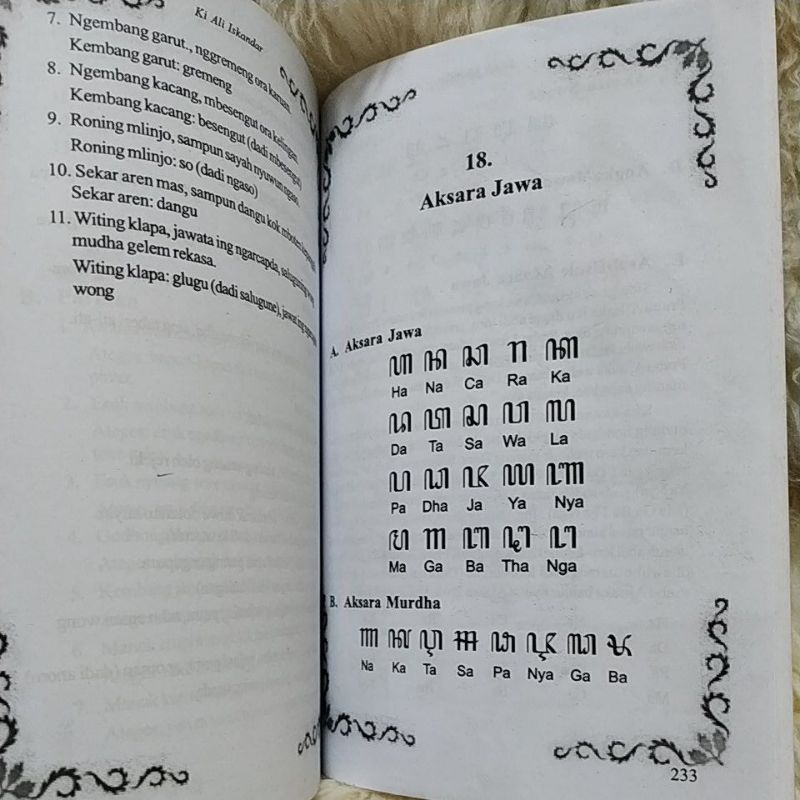 Ki Ali Iskandar
7. Ngembang garut., nggremeng ora karuan.
Kembang garut: gremeng
8. Ngembang kacang, mbesengut ora kelingan
Kembang kacang: besengut (dadi mbesengut)
9. Roning mlinjo, sampun sayah nyuwun ngaso
Roning mlinjo: so (dadi ngaso)
10. Sekar aren mas, sampun dangu kok mboten
Sekar aren: dangu
11. Witing klapa, jawata ing ngarcapda, salugune
mudha gelem rekasa.
Witing klapa: glugu (dadi salugune), jawat ing
wong
18.
Aksara Jawa
A. Aksara Jawa
ꦲ ꦤ ꦕ ꦫ ꦏ
Ha Na Ca Ra Ka
ꦢ ꦠ ꦱ ꦮ ꦭ
Da Ta Sa Wa La
ꦥ ꦝ ꦗ ꦪ ꦚ
Pa Dha Ja Ya Nya
ꦩ ꦒ ꦧ ꦛ ꦔ
Ma Ga Ba Tha Nga
B. Aksara Murdha
ꦟ ꦑ ꦡ ꦯ ꦦ ꦘ ꦓ ꦨ
Na Ka Ta Sa Pa Nya Ga Ba
233